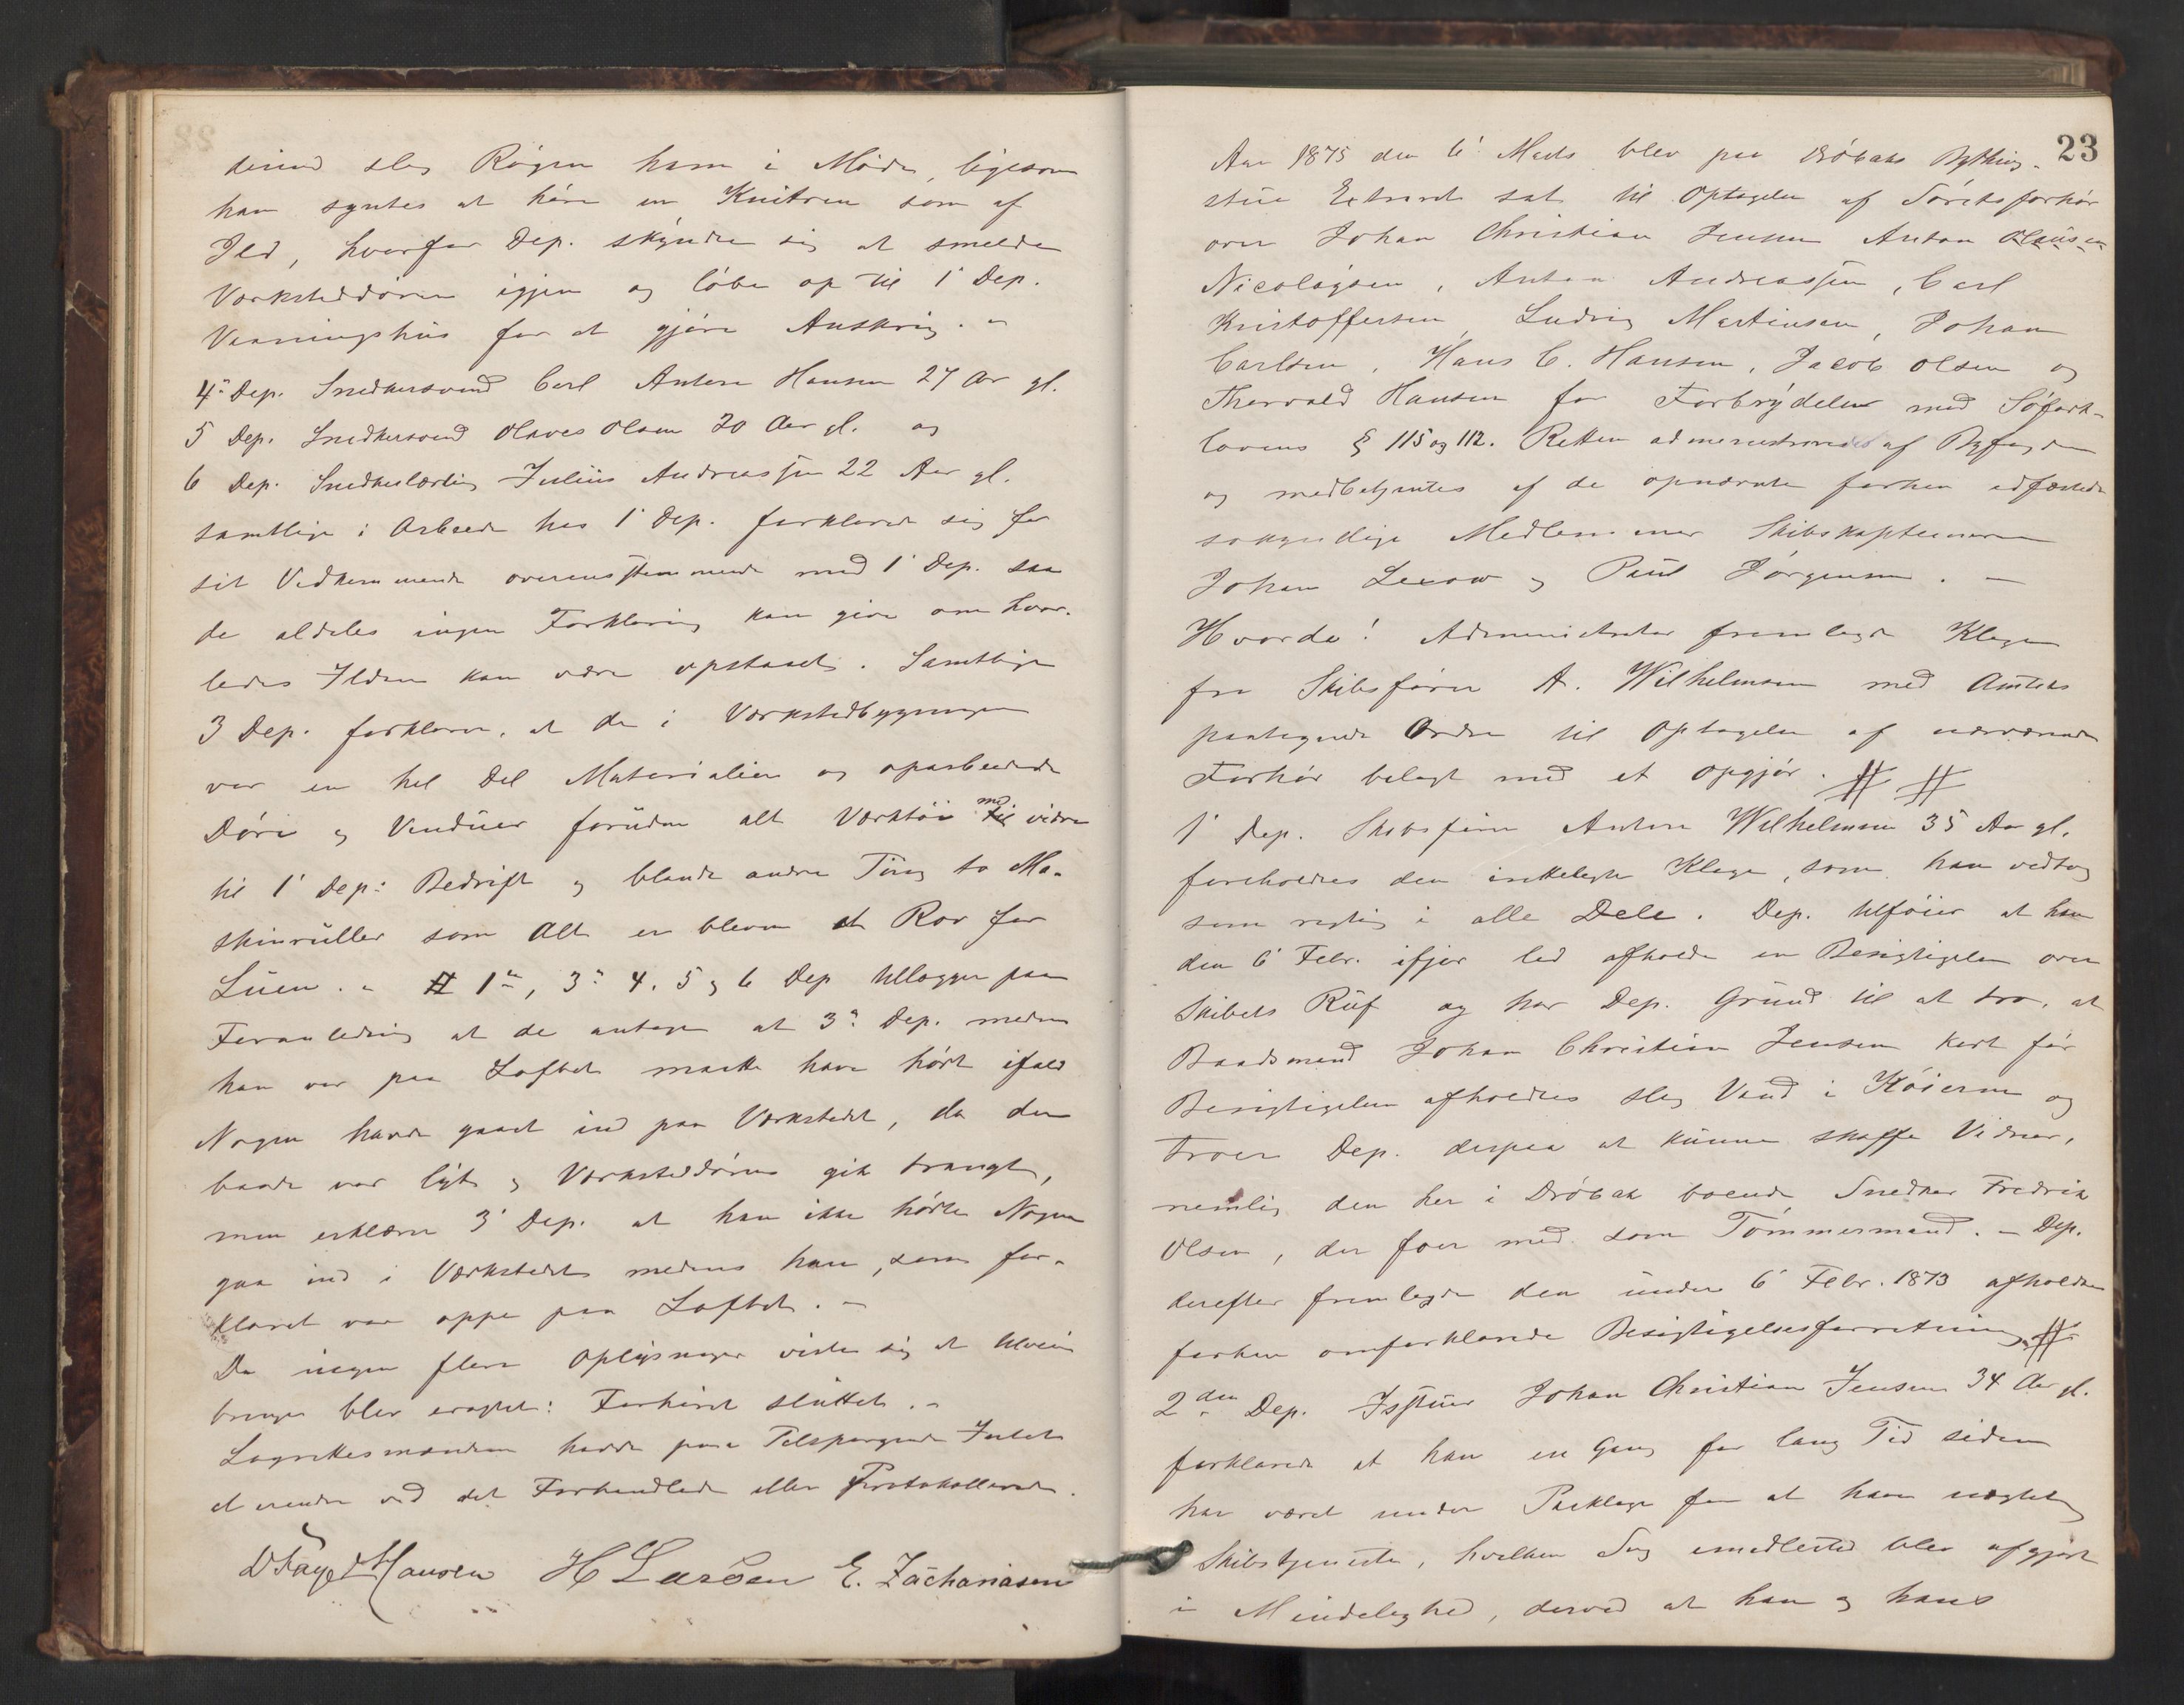 derind slog Rögen ham i Möde, ligesom
han syntes at höre en Knitren som af
Ild, hvorfor Dep. skyndte sig at smelde
Værksteddören igjen og löbe op til 1' Dep.
Vaaningshus for at gjöre Anskrig. -
4' Dep. Snedkersvend Carl Anton Hansen 27 Aar gl.
5 Dep. Snedkersvend Olaves Olsen 20 Aar gl. og
6 Dep. Snedkerlærling Julius Andreassen 22 Aar gl.
samtlige i Arbeide hos 1' Dep. forklarede sig for
sit Vedkommende overensstemmende med 1' Dep. saa
de aldeles ingen Forklaring kan give om hvor-
ledes Ilden kan være opstaaet. Samtlige
3 Dep. forklarer, at der i Værkstedbygningen
var en hel Del Materialier og oparbeidede
Döre og Vinduer foruden alt Værktöi md videre
til 1' Dep: Bedrift og blandt andre Ting to Ma-
skinruller som Alt er bleven et Rov for
Luen. - # 1', 3' 4. 5 og 6 Dep tillægger paa
Foranledning at de antager at 3' Dep. medens
han var paa Loftet maatte have hört ifald
Nogen havde gaaet ind paa Værkstedet, da der
baade var lydt og Værksteddören gik trangt,
men erklærer 3' Dep. at han ikke hörte Nogen
gaa ind i Værkstedet medens han, som for-
klaret var oppe paa Loftet. -
Da ingen flere Oplysninger viste sig at tilveie
bringe blev eragtet: Forhöret sluttet. -
Lagrettesmændene havde paa Tilspörgende Intet
at erindre ved det Forhandlede eller Protokollerede.
Hansen H Larsen E. Zachariasen
23
Aar 1875 den 6' Marts blev paa Dröbaks Bything-
stue Extraret sat til Optagelse af Söretsforhör
over Johan Christian Jensen Anton Olausen
Nicolaysen, Anton Andreassen, Carl
Kristoffersen, Ludvig Martinsen, Johan
Carlsen, Hans C. Hansen, Jacob Olsen og
Thorvald Hansen for Forbrydelser mod Söfarts-
lovens § 115 og 112. Retten administreredes af Byfogden
og medbetjentes af de opnævnte forhen edfæstede
sökyndige Medlemmer Skibskapteinerne
Johan Lexow og Paul Jörgensen. -
Hvorda! Administrator fremlagde Klagen
fra Skibsförer A. Wilhelmsen med Amtets
paategnede Ordre til Optagelse af nærværende
Forhör belagt med et Opgjör. # #
1' Dep. Skibsförer Anton Wilhelmsen 35 Aar gl.
foreholdtes den indelagte Klage, som han vedtog
som rigtig i alle Dele. Dep. tilföier at han
den 6' Febr. ifjor lod afholde en Besigtigelse over
Skibets Ruf og har Dep. Grund til at tro, at
Baadsmand Johan Christian Jensen kort för
Besigtigelsen afholdtes slog Vand i Köierne og
troer Dep. derpaa at kunne skaffe Vidner,
nemlig den her i Dröbak boende Snedker Fredrik
Olsen, der foer med som Tömmermand. - Dep.
derefter fremlagde den under 6' Febr. 1873 afholdte
forhen omforklarede Besigtigelsesforretning. #
2den Dep. Johan Christian Jensen 34 Aar gl.
forklarede at han en Gang for lang Tid siden
har været under Paaklage for at have nægtet
Skibstjeneste, hvilken Sag imidlertid blev afgjort
i Mindelighed, derved at han og hans